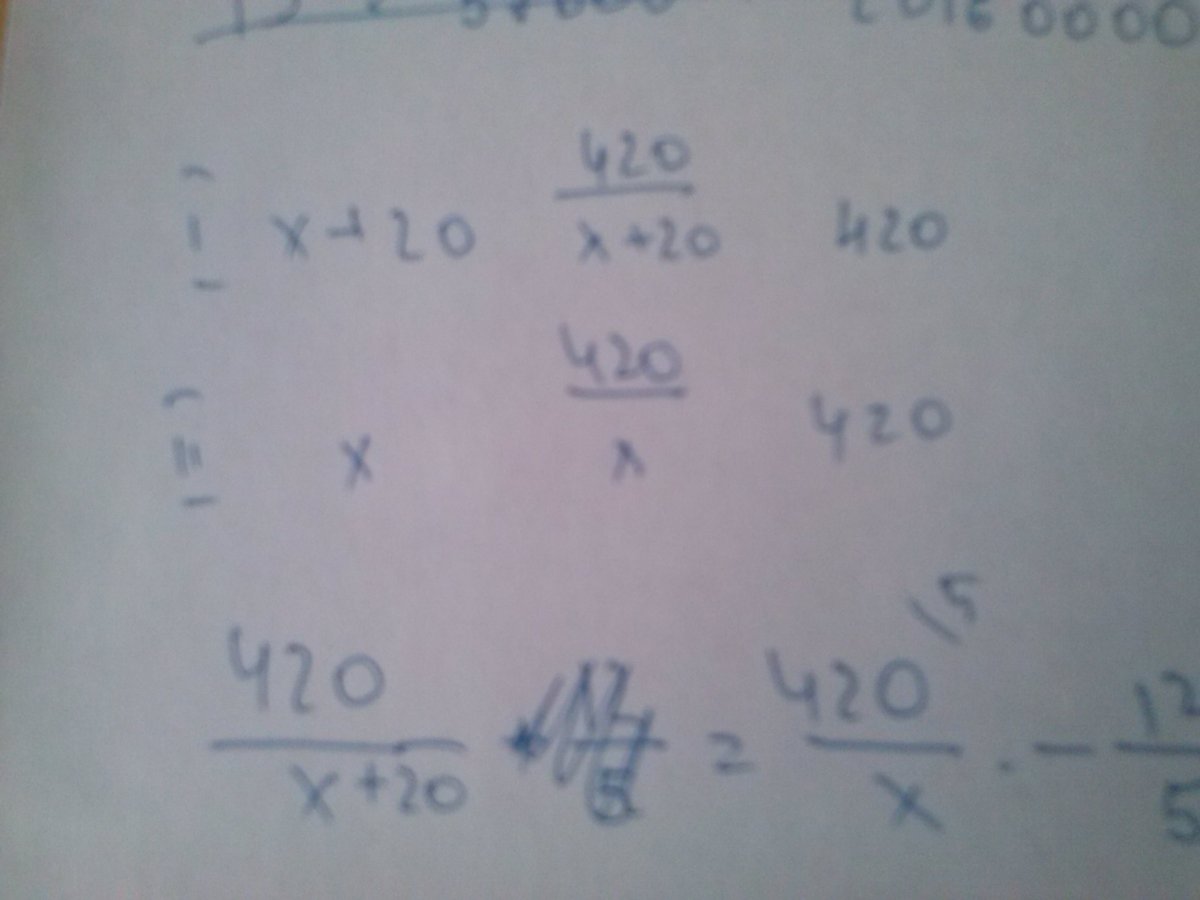 20160000
I x+20 420/(x+20) 420
II x 420/x 420
420/(x+20) = 420/x \5 . - 12/5